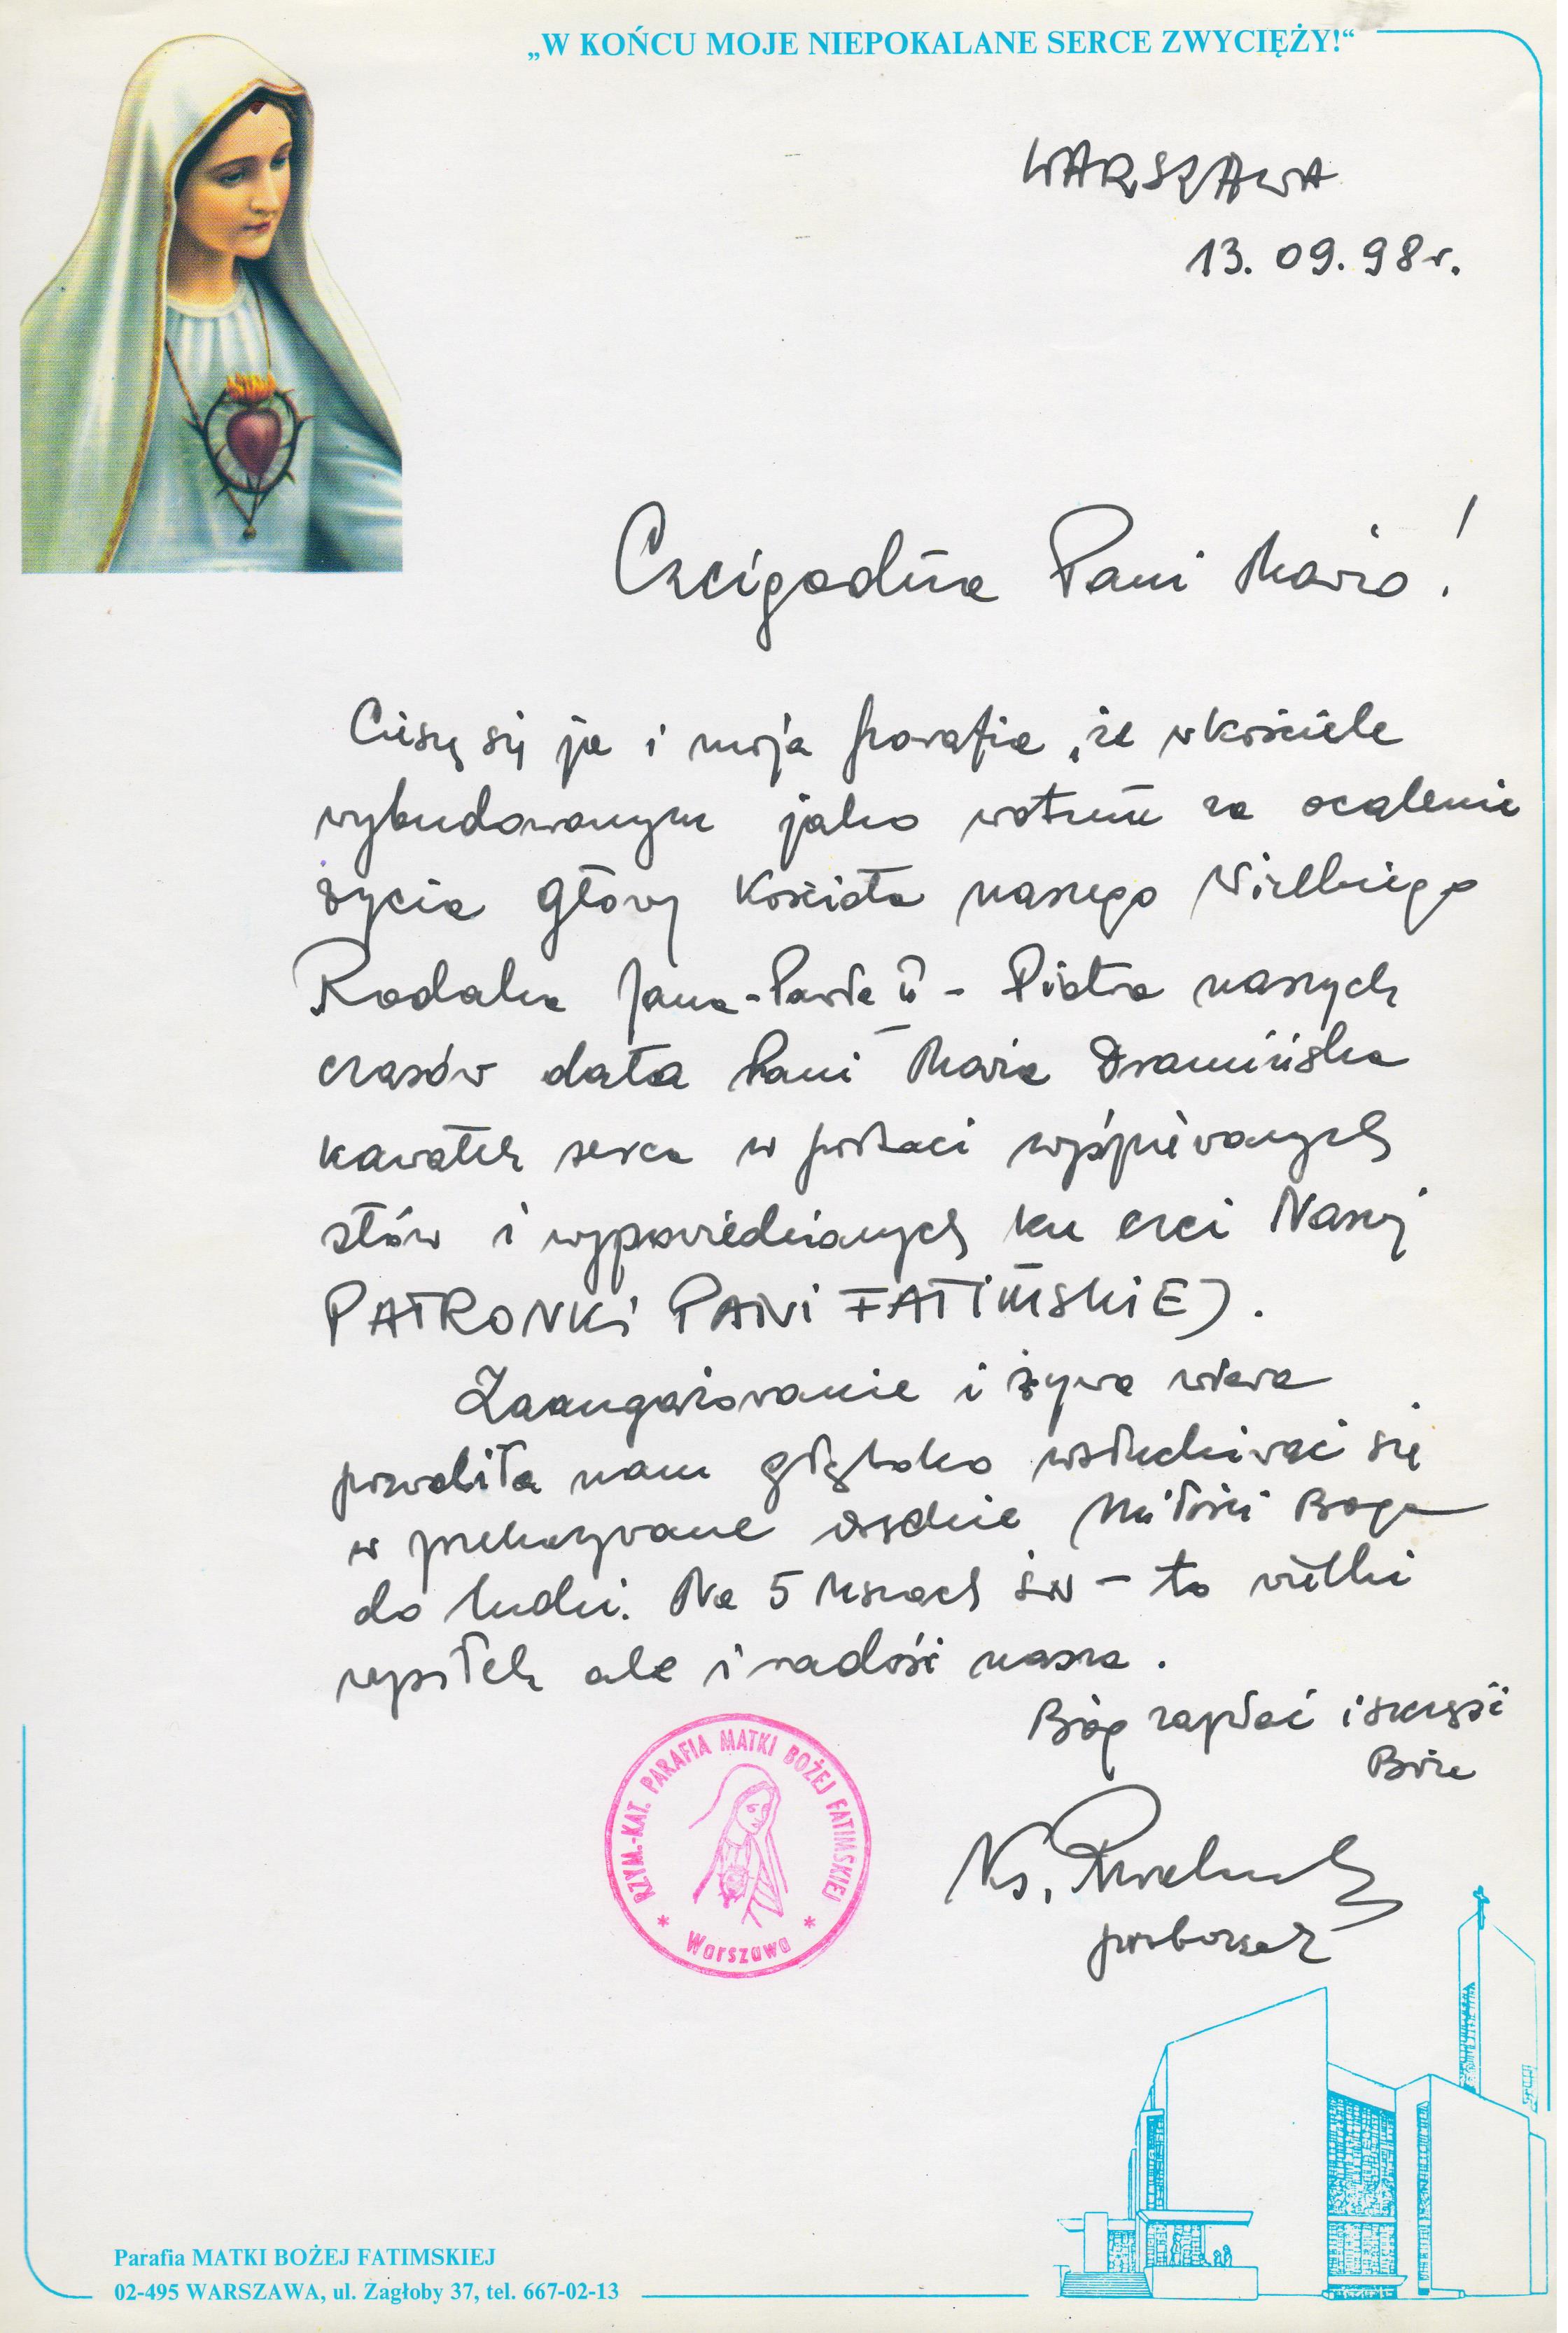 „W KOŃCU MOJE NIEPOKALANE SERCE ZWYCIĘŻY!“
WARSZAWA
13. 09. 98 r.
Czcigodna Pani Mario!
Cieszę się ja i moja parafia, że w kościele
wybudowanym jako wotum za ocalenie
życia Głowy Kościoła naszego Wielkiego
Rodaka Jana-Pawła II - Piotra naszych
czasów dała Pani Maria
kawałek serca w postaci wyśpiewanych
słów i wypowiedzianych ku czci Naszej
PATRONKI PANI FATIMSKIEJ.
Zaangażowanie i żywa wiara
pozwoliła nam głęboko wsłuchiwać się
w przekazywane orędzie Miłości Boga
do ludzi. Na 5 Mszach św - to wielki
wysiłek ale i radość nasza.
Bóg zapłać i szczęść
Boże
Ks.
proboszcz
RZYM.-KAT. PARAFIA MATKI BOŻEJ FATIMSKIEJ
* Warszawa *
Parafia MATKI BOŻEJ FATIMSKIEJ
02-495 WARSZAWA, ul. Zagłoby 37, tel. 667-02-13